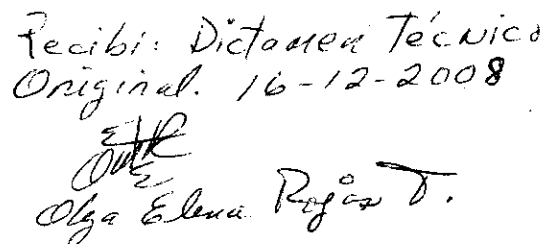 Recibi: Dictamen Técnico
Original. 16-12-2008
Olga Elena Rojas T.